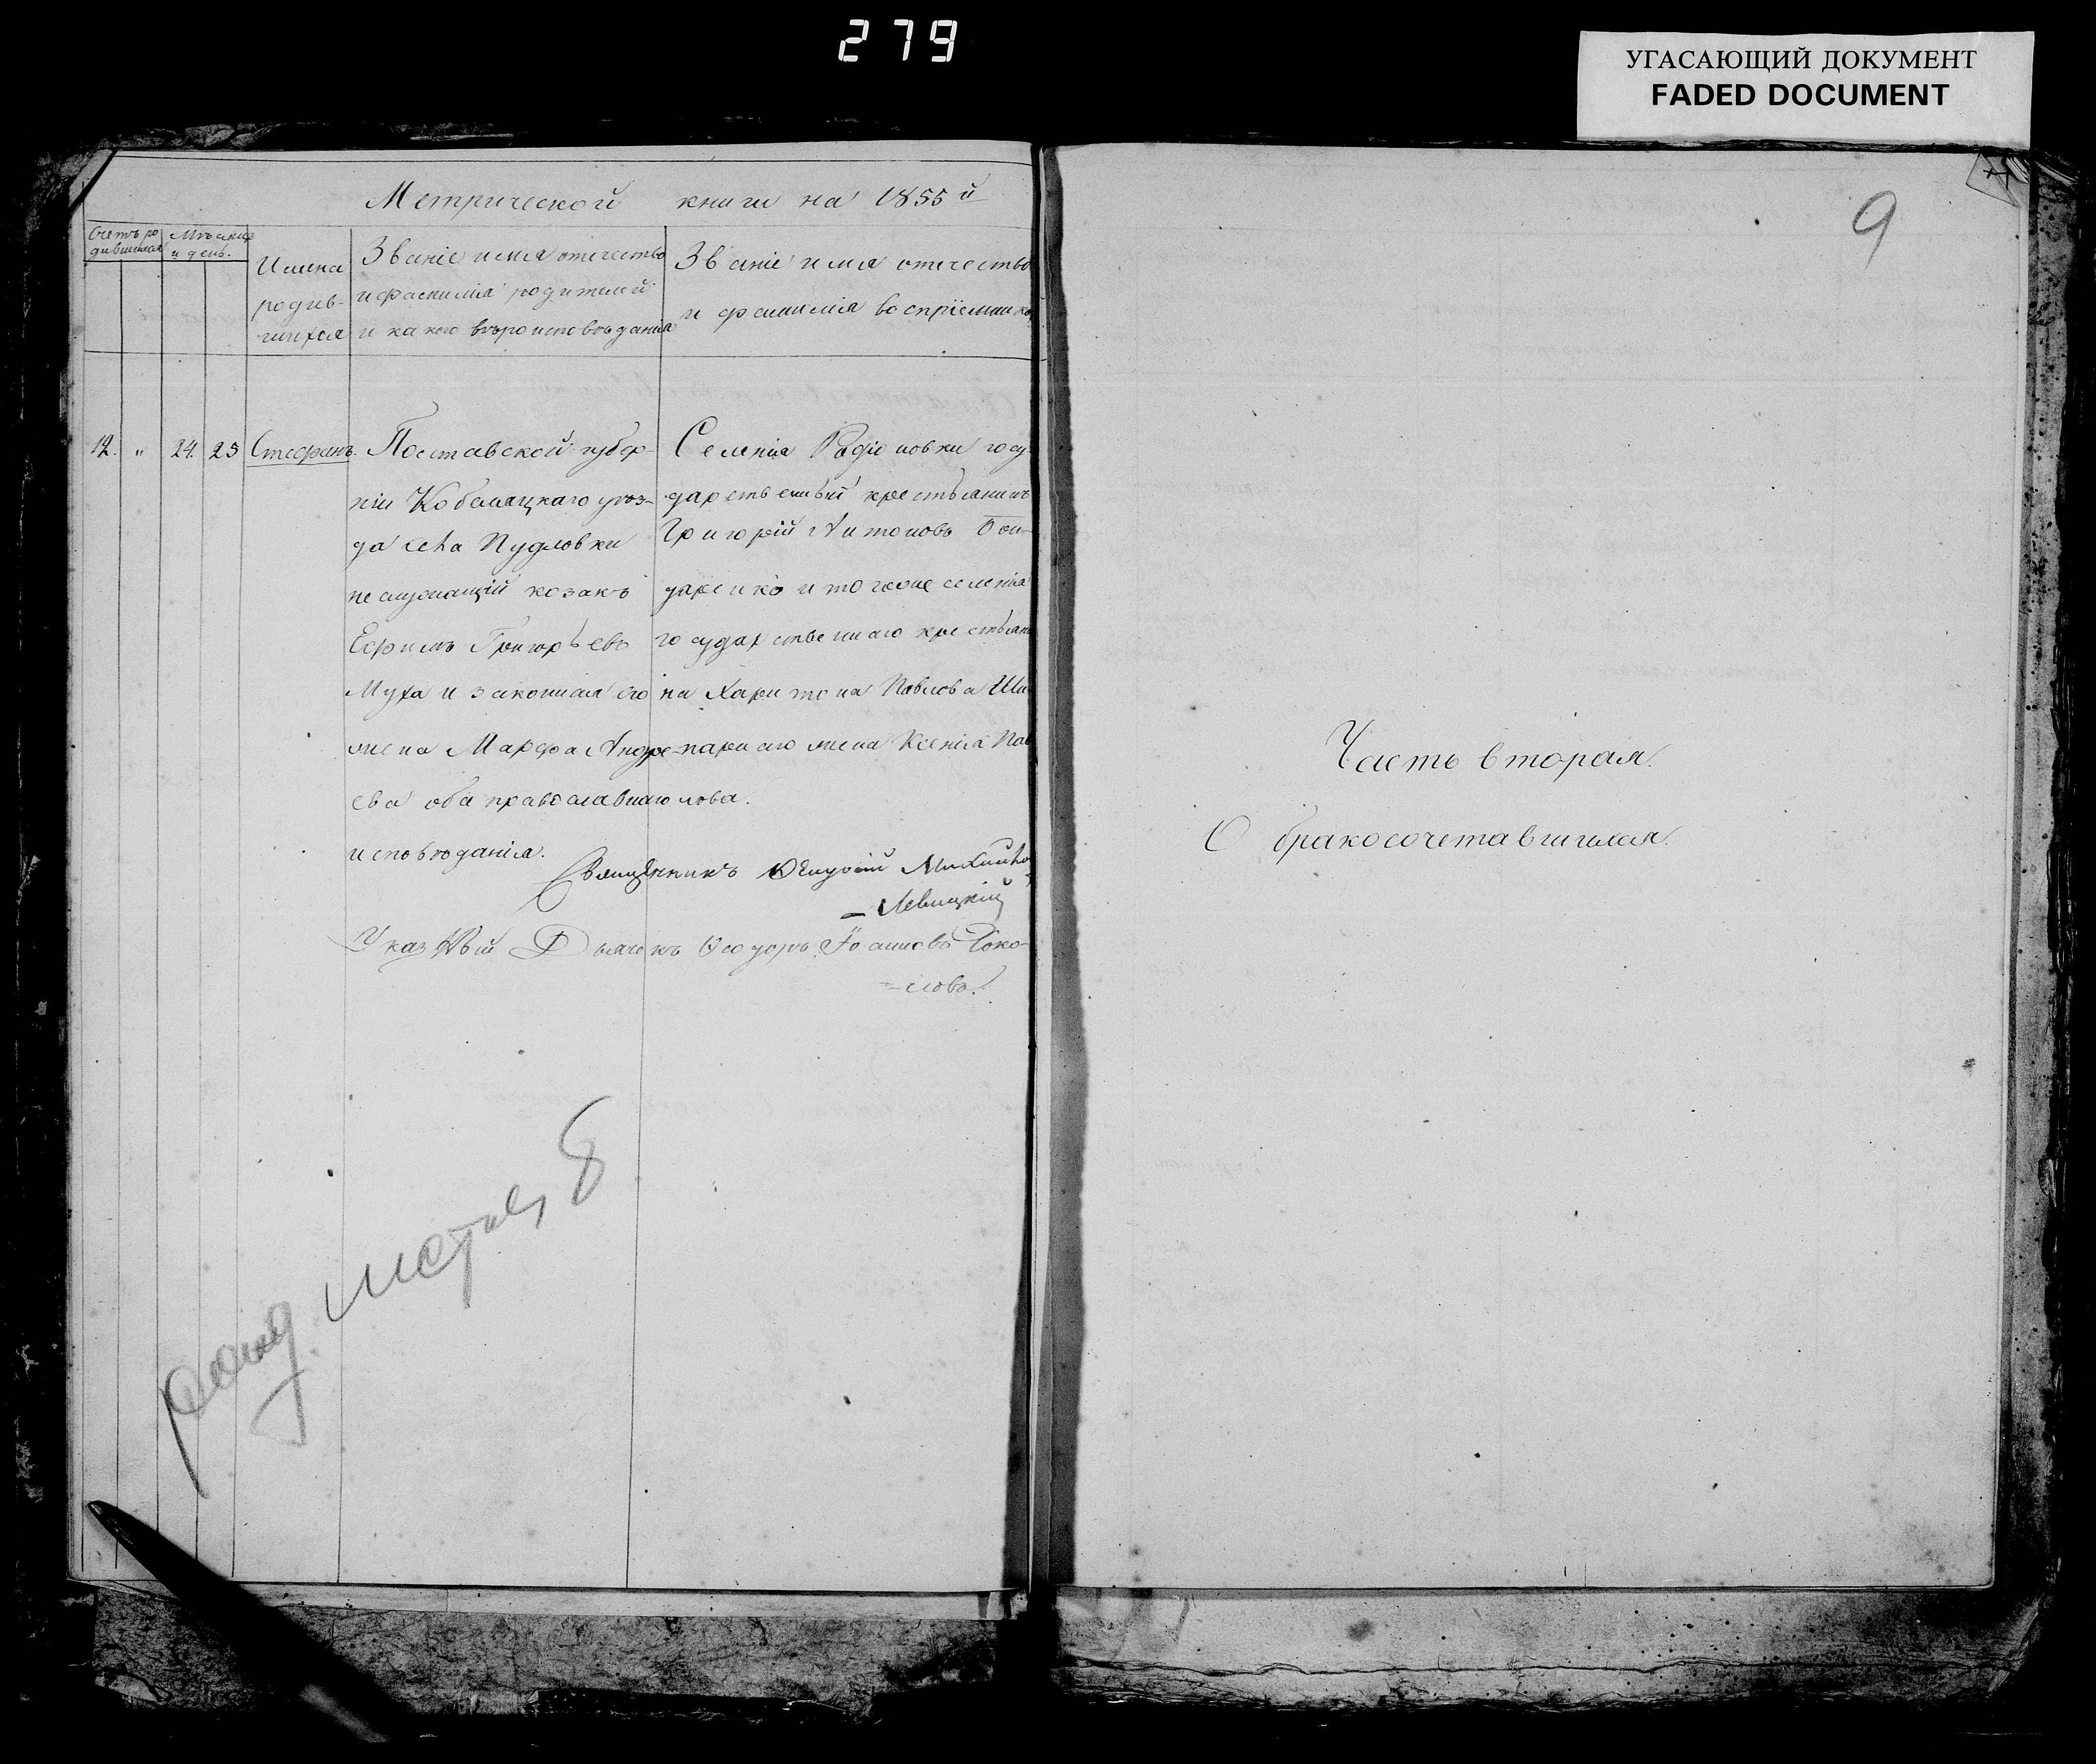 279
УГАСАЮЩИЙ ДОКУМЕНТ
FADED DOCUMENT
Метрической книги на 1855й
Счетъ ро
дившихся
Мѣсяцъ
и день.
Имена
родив-
шихся
Званіе имя отечество
и фамилія родителей
и какого вѣроисповѣданія
Званіе имя отечество
и фамилія воспріемнико
12. " 24. 25 Стефанъ.
Полтавской губер-
ніи Кобеляцкаго уѣз-
да села Пудловки
неслужащій козакъ
Ефимъ Григорьевъ
Муха и законная его
жена Марфа Андре-
ева оба православнаго
исповѣданія.
Селенія Радіоновки госу
дарственный крестьянинъ
Григорій Антоновъ Бон-
даренко и тогоже селенія
государственнаго крестьяни
на Харитона Павлова Ши
нкарнаго жена Ксенія Пав
лова.
Священникъ Михайло
= Левицкій
Указный Дьячекъ Ѳеодоръ Іоанновъ Соко-
=ловъ.
листов 8
9
Часть вторая.
О бракосочетавшихся.